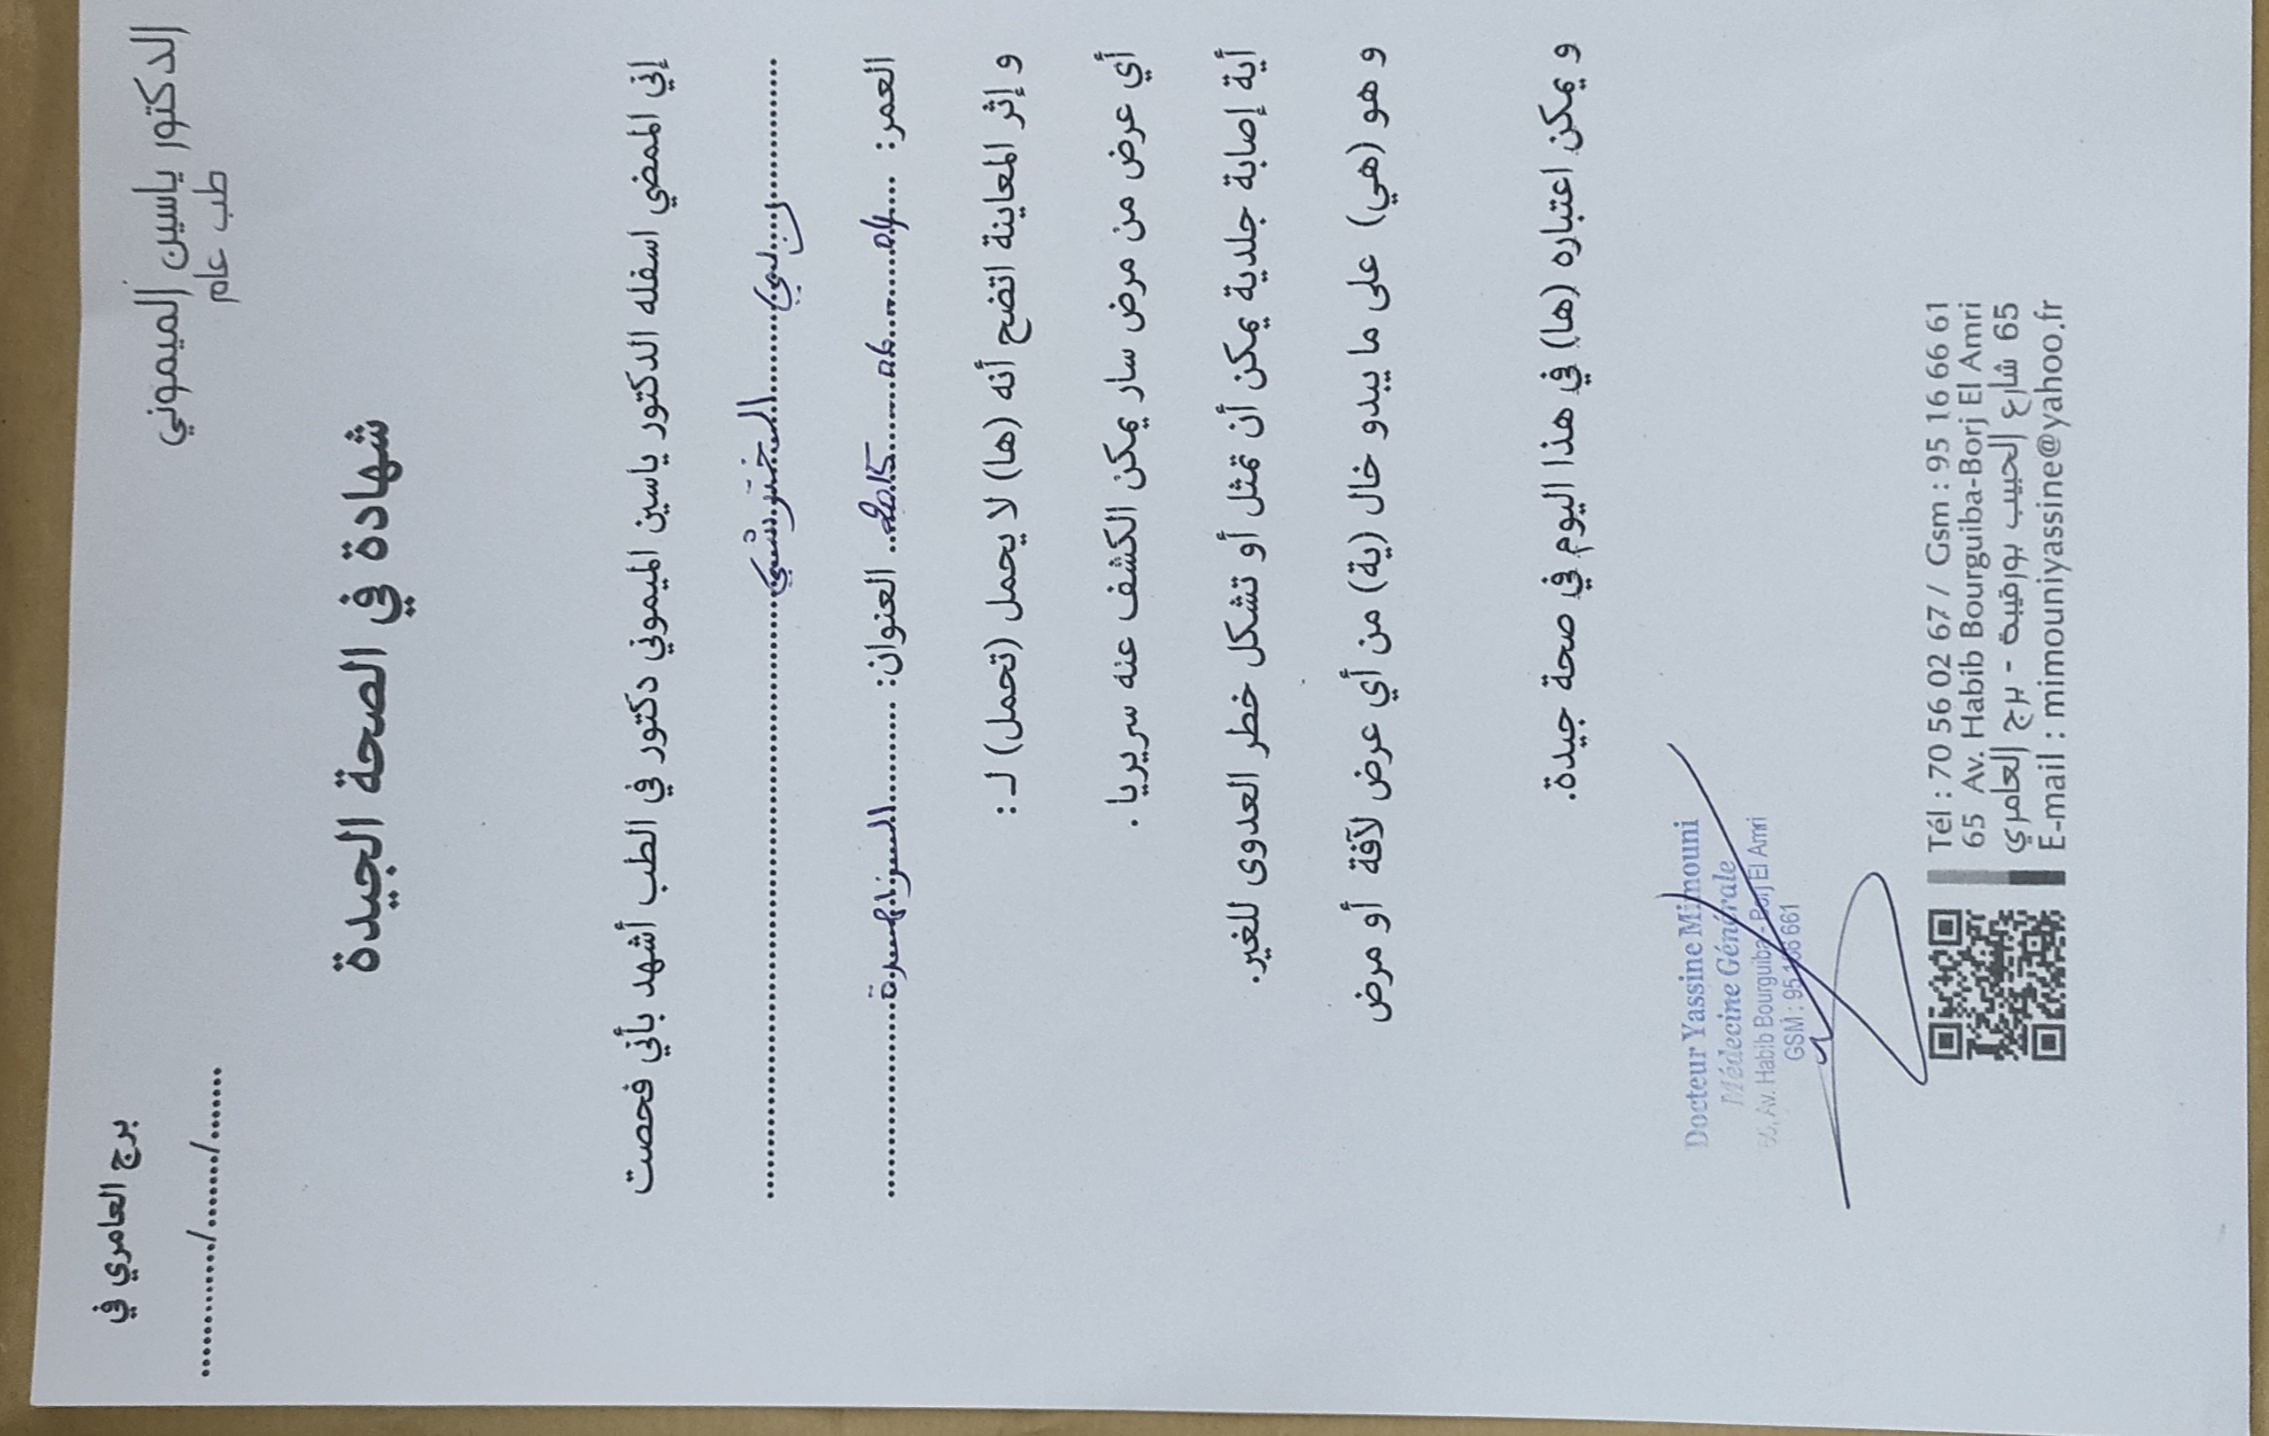 الدكتور ياسين الميموني
طب عام
برج العامري في
............/........../........
شهادة في الصحة الجيدة
إني الممضي اسفله الدكتور ياسين الميموني دكتور في الطب أشهد بأني فحصت
العمر: 04 06 2015 العنوان:
و إثر المعاينة اتضح أنه (ها) لا يحمل (تحمل) لـ :
أي عرض من مرض سار يمكن الكشف عنه سريريا .
أية إصابة جلدية يمكن أن تمثل أو تشكل خطر العدوى للغير.
و هو (هي) على ما يبدو خال (ية) من أي عرض لآفة أو مرض
و يمكن اعتباره (ها) في هذا اليوم في صحة جيدة.
Docteur Yassine Mimouni
Médecine Générale
65, Av. Habib Bourguiba - Borj El Amri
GSM : 95 166 661
Tél : 70 56 02 67 / Gsm : 95 16 66 61
65 Av. Habib Bourguiba-Borj El Amri
65 شارع الحبيب بورقيبة - برج العامري
E-mail : mimouniyassine@yahoo.fr